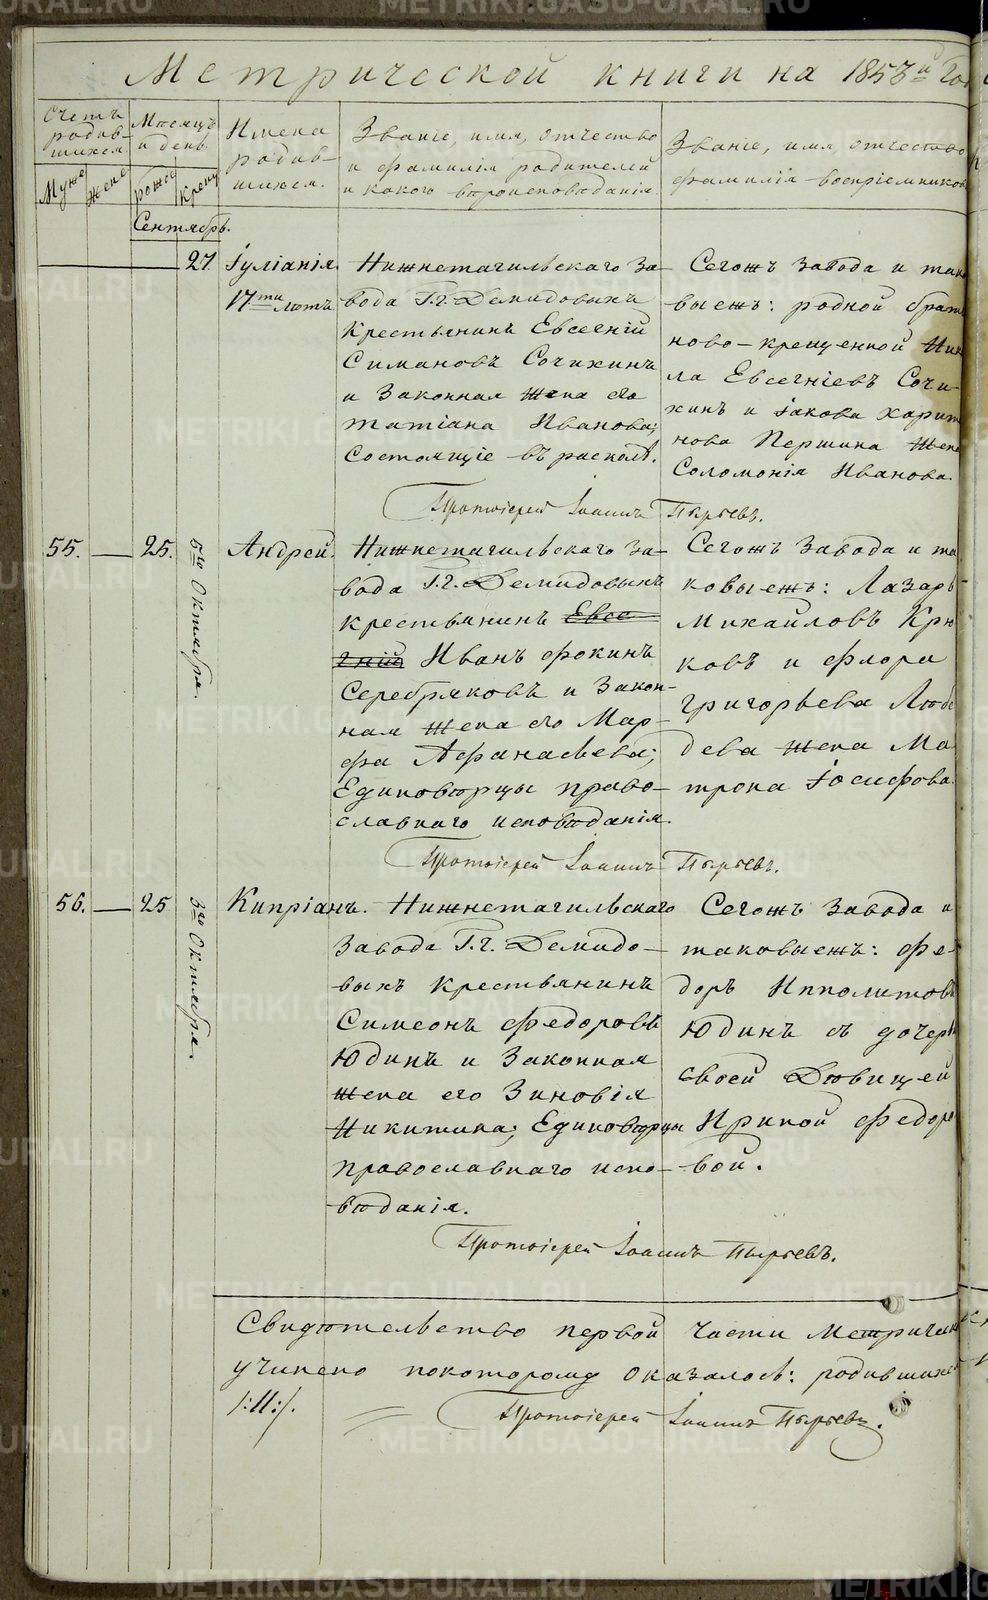 Метрической книги на 1853й Го
Счетъ родив-шихся
Месяцъ и день
Имена родив-шихся.
Званіе, имя, отчество и фамилія родителей и какого вѣроисповѣданія
Званіе, имя, отчество фамилія воспріемниковъ
Муже
Жене
рожд
крещ
Сентябрь.
27. Іуліанія. 17ти лѣтъ
Нижнетагильскаго За-
вода Г.г. Демидовыхъ
Крестьянинъ Евсегній
Симановъ Сочихинъ
и Законная Жена его
Татіана Иванова;
Состоящіе въ расколѣ.
Сегожъ Завода и так
выежъ: родной брат
ново-крещенной Ни
ла Евсегніевъ Сочи-
хинъ и Іакова Харит
нова Першина Жена
Соломонія Иванова.
Протоіерей Іоаннъ Пырьевъ.
55. — 25. 5го Октября. Андрей.
Нижнетагильскаго За-
вода Г.г. Демидовыхъ
крестьянинъ Евсе
гній Иванъ Фокинъ
Серебряковъ и Закон-
ная жена его Мар-
фа Афанасьева;
Единовѣрцы право-
славнаго исповѣданія.
Сегожъ Завода и та
ковыежъ: Лазарь
Михайловъ Крю
ковъ и Флора
Григорьева Любе
дева жена Ма
трона Іосифова.
Протоіерей Іоаннъ Пырьевъ.
56. — 25 3го Октября. Кипріанъ.
Нижнетагильскаго
Завода Г.г. Демидо-
выхъ крестьянинъ
Симеонъ Федоровъ
Юдинъ и Законная
жена его Зиновія
Никитина; Единовѣрцы
православнаго испо-
вѣданія.
Сегожъ Завода и
таковыежъ: Фе-
доръ Ипполитовъ
Юдинъ съ дочерью
своей Дѣвицей
Ириной Федоро
вой.
Протоіерей Іоаннъ Пырьевъ.
Свидѣтельство первой части Метрическ
учинено покоторому оказалось: родившихся
Протоіерей Іоаннъ Пырьевъ.
METRIKI.GASO-URAL.RU